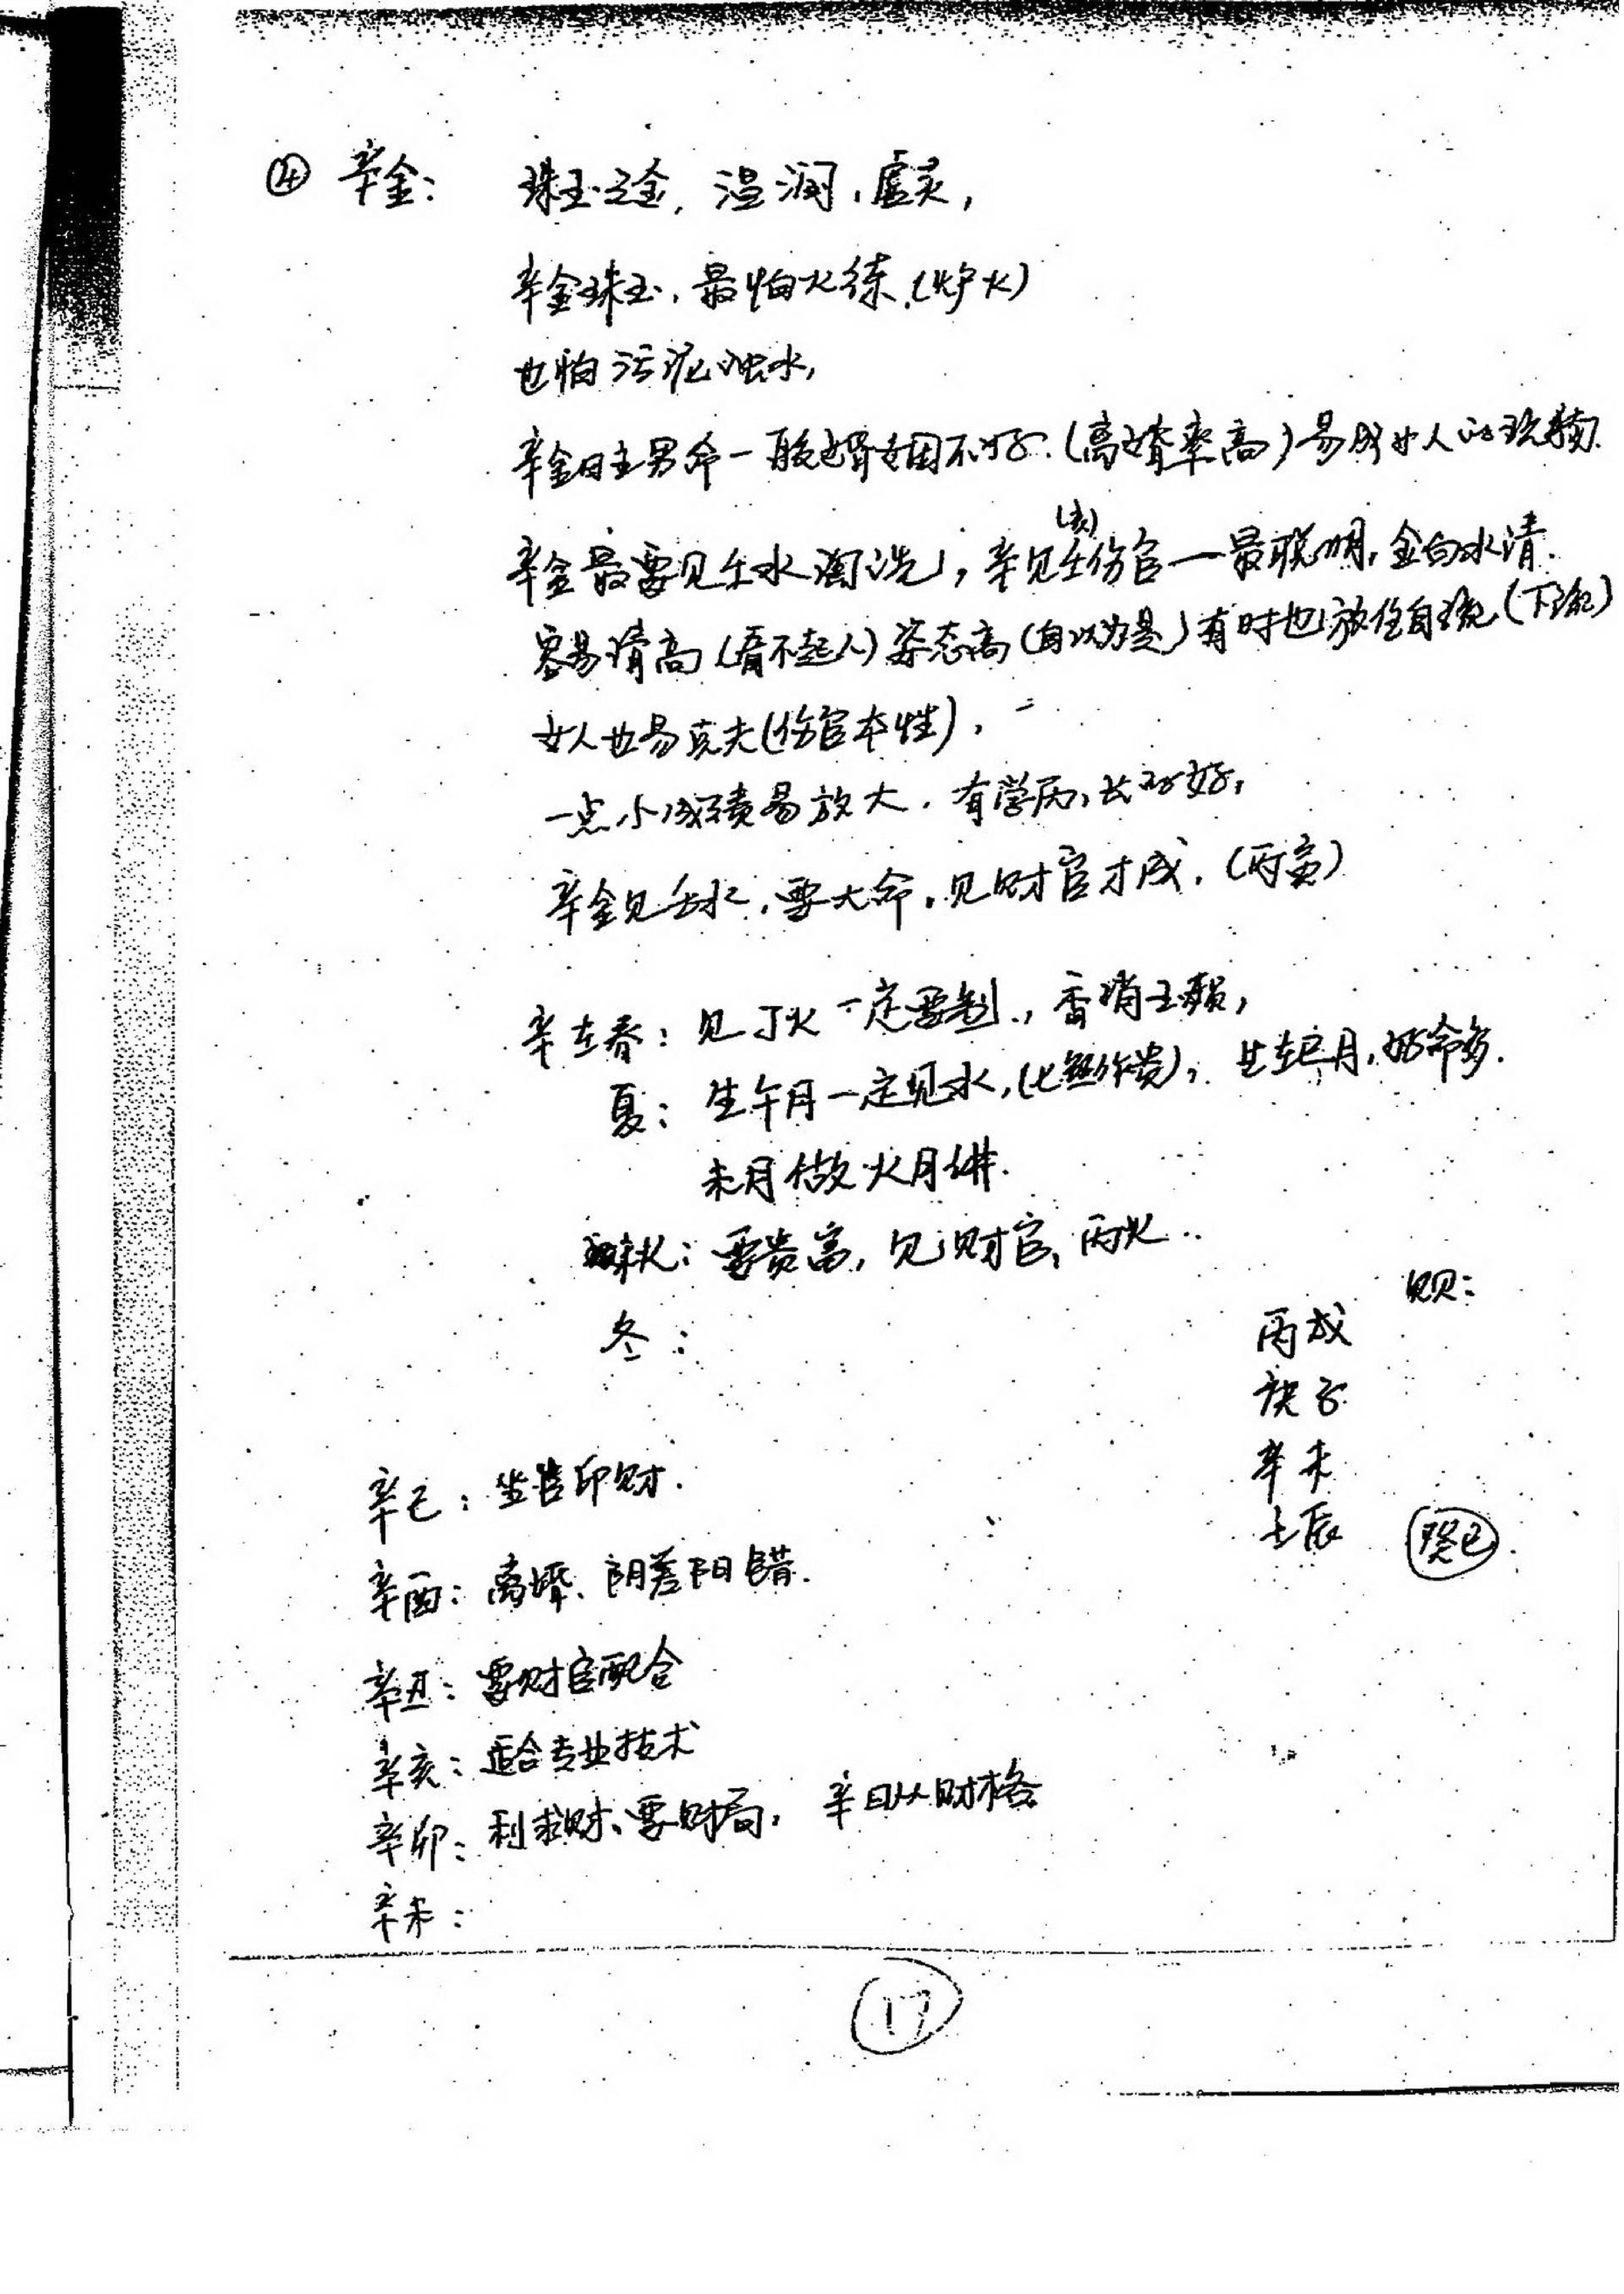 ④ 辛金： 珠玉之金，温润，虚灵，
辛金珠玉，最怕火练，（炉火）
也怕污泥浊水，
辛金日主男命一般婚姻不好．（离婚率高）易成女人的玩物．
（亥）
辛金最要见壬水淘洗，辛见壬伤官一最聪明，金白水清．
容易清高（看不起人）姿态高（自以为是）有时也放任自流（下流）
女人也易克夫（伤官本性），
一点小成绩易放大．有学历，长得好，
辛金见壬水，要大命，见财官才成．（丙寅）
辛在春：见丁火一定要制．，香消玉殒，
夏：生午月一定见水，（七煞作贵），生在巳月，好命多．
未月做火月讲．
秋：要贵富，见财官，丙火..
冬：
丙戌
庚子
辛未
壬辰 癸巳
辛巳：坐官印财．
辛酉：离婚、阴差阳错．
辛丑：要财官配合
辛亥：适合专业技术
辛卯：利求财、要财局，辛日从财格
辛未：
17